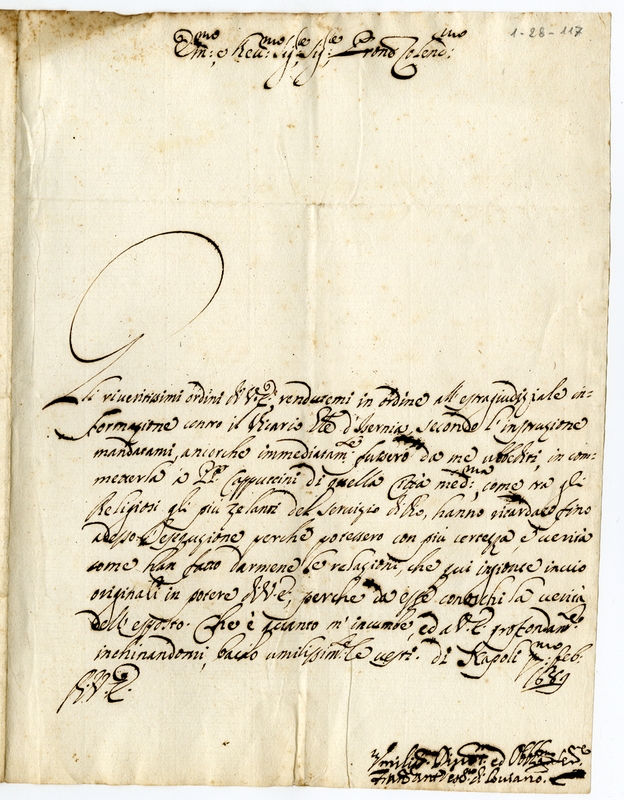 1-28-117
Em:mo e Rev:mo Sig:re Sig:re Prone Colend:mo
Li riveritissimi ordini di V.E. rendutemi in ordine all'estragiudiziale in-
formazione contro il Vicario d'Isernia, secondo l'instruzione
mandatami, ancorche immediatam.te fussero da me ubbediti, in com-
metterla a PP. Cappuccini di quella Città med:ma, come tra gli
Religiosi gli più zelanti del servizio di Dio, hanno ritardato fino
adesso l'esecuzione perche potessero con più certezza, e verità
come han fatto darmene le relazioni, che qui insieme invio
originali in potere di V.E., perche da esse conoschi la verità
dell'esposto. Che è quanto m'incumbe, ed a V.E. profondam.te
inchinandomi, bacio umilissim.te le vesti. di Napoli p.mo feb.
1689
D.V.E.
Umiliss. Divot.mo ed Obb.mo Ser.re